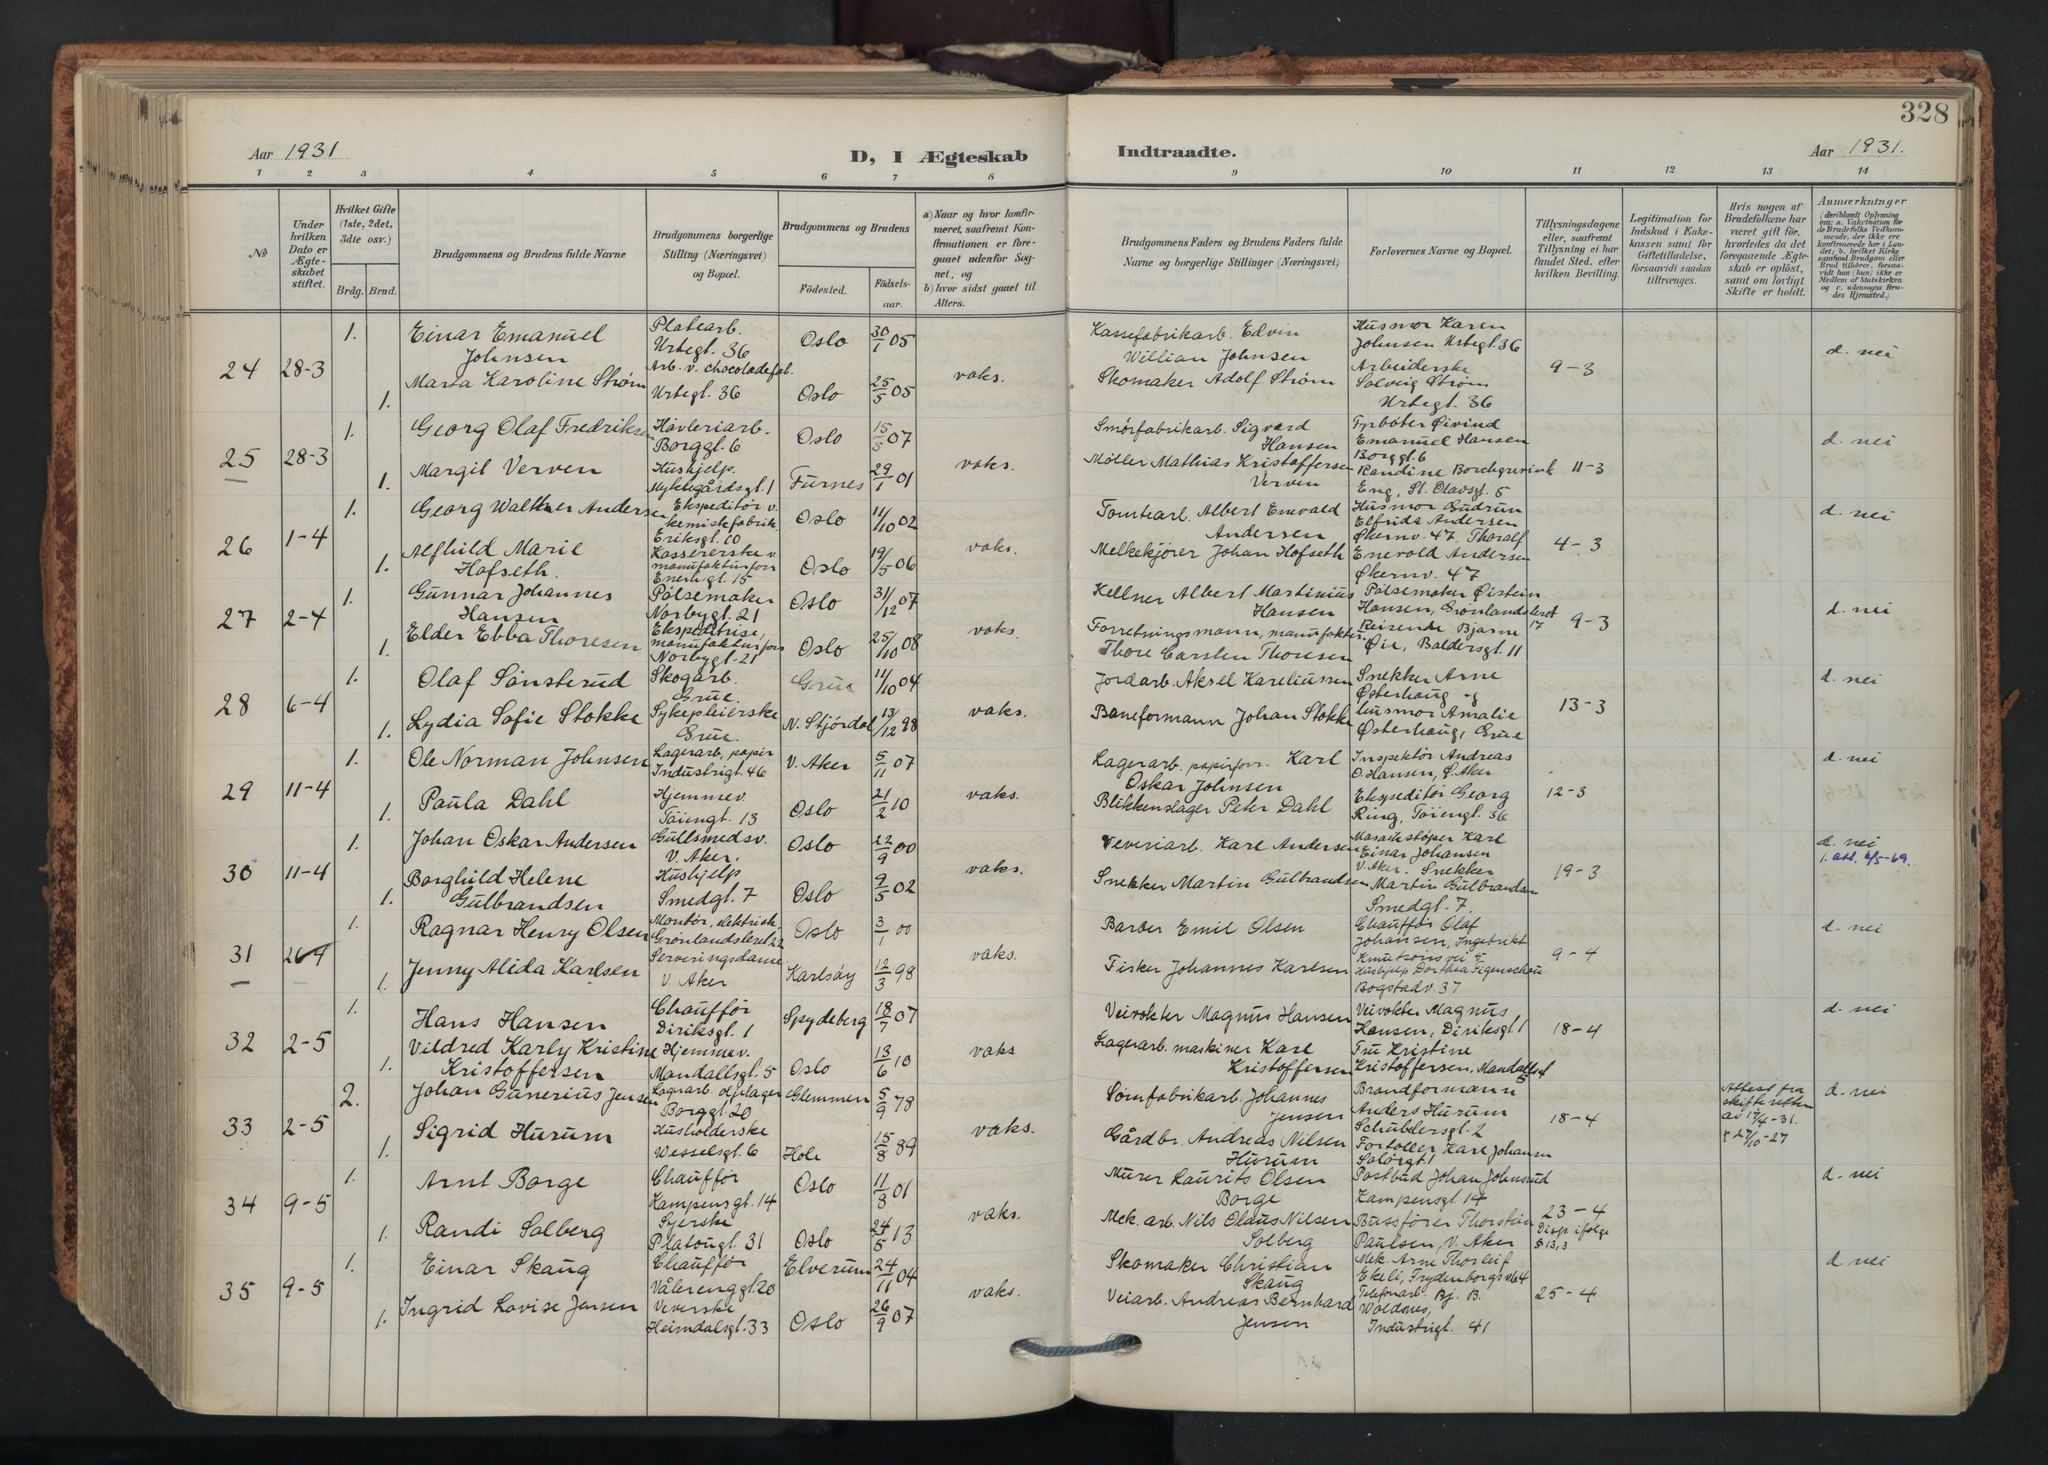 328
Aar 1931
D, I Ægteskab
Indtraadte.
Aar 1931.
1 2 3 4 5 6 7 8 9 10 11 12 13 14
№
Under hvilken Dato er Ægteskabet stiftet.
Hvilket Gifte (1ste, 2det, 3die osv.)
Brdg. Brud.
Brudgommens og Brudens fulde Navne
Brudgommens borgerlige Stilling (Næringsvei) og Bopæl.
Brudgommens og Brudens
Fødested.
Fødselsaar.
a) Naar og hvor konfirmeret, saafremt Konfirmationen er foregaaet udenfor Sognet, og
b) hvor sidst gaaet til Alters.
Brudgommens Faders og Brudens Faders fulde Navne og borgerlige Stillinger (Næringsvei)
Forlovernes Navne og Bopæl.
Tillysningsdagene eller, saafremt Tillysning ei har fundet Sted, efter hvilken Bevilling.
Legitimation for Indskud i Enkekassen samt for Giftetilladelse, forsaavidt saadan tiltrænges.
Hvis nogen af Brudefolkene har været gift før, hvorledes da det foregaaende Ægteskab er opløst, samt om lovligt Skifte er holdt.
Anmærkninger
(deriblandt Oplysning om: a. Vakcination for de Brudefolks Vedkommende, der ikke ere konfirmerede her i Landet; b. hvilket Kirkesamfund Brudgom eller Brud tilhører, forsaavidt han (hun) ikke er Medlem af Statskirken og c. udensogns Brudes Hjemsted.)
24 28-3
1. Einar Emanuel Johnsen
Platearb. Urtegt. 36
Oslo 30/1 05
1. Marta Karoline Strøm
Arb. v. chocoladefab. Urtegt. 36
Oslo 25/5 05
vaks.
Kassefabrikarb. Edvin Willian Johnsen
Skomaker Adolf Strøm
Husmor Karen Johnsen Urtegt. 36
Arbeiderske Solveig Strøm Urtegt. 36
9-3
d. nei
25 28-3
1. Georg Olaf Fredriksen
Høvleriarb. Borggt. 6
Oslo 15/5 07
1. Margit Verven
Hushjelp Munkegårdsgt. 1
Furnes 29/1 01
vaks.
Smørfabrikarb. Sigvard Hansen
Møller Mathias Kristoffersen Verven
Fyrbøter Øivind Emanuel Hansen Borggt. 6
Randine Borchgrevink Eng, St. Olavsgt. 5
11-3
d. nei
26 1-4
1. Georg Walther Andersen
Ekspeditør v. kemiskfabrik Eriksgt. 10
Oslo 11/10 02
1. Alfhild Marie Hofseth.
Kassererske v. manufakturforr. Enerhgt. 15
Oslo 19/5 06
vaks.
Tomtearb. Albert Enevald Andersen
Melkekjører Johan Hofseth
Husmor Gudrun Elfrida Andersen Økernv. 47
Thoralf Enevold Andersen Økernv. 47
4-3
d. nei
27 2-4
1. Gunnar Johannes Hansen
Pølsemaker Norbygt. 21
Oslo 31/12 07
1. Elder Ebba Thoresen
Ekspeditrise, manufakturforr. Norbygt. 21
Oslo 25/10 08
vaks.
Kellner Albert Martinius Hansen
Forretningsmann, manufaktur Thore Carsten Thoresen
Pølsemaker Øistein Hansen, Grønlandsleret 17
Reisende Bjarne Øie, Baldersgt. 11
9-3
d. nei
28 6-4
1. Olaf Sønsterud
Skogarb. Grue
Grue 11/10 04
1. Lydia Sofie Stokke
Sykepleierske Grue.
N. Stjørdal 13/12 98
vaks.
Jordarb. Aksel Kareliussen
Baneformann Johan Stokke
Snekker Arne Østerhaug og husmor Amalie Østerhaug, Grue
13-3
d. nei
29 11-4
1. Ole Norman Johnsen
Lagerarb, papir Industrigt. 46
V. Aker 5/11 07
1. Paula Dahl
Hjemmev. Tøiengt. 13
Oslo 21/2 10
vaks.
Lagerarb. papirforr. Karl Oskar Johnsen
Blikkenslager Peter Dahl
Inspektør Andreas O. Hansen, Ø. Aker
Ekspeditør Georg Ring, Tøiengt. 36
12-3
d. nei
30 11-4
1. Johan Oskar Andersen
Gullsmedsv. V. Aker.
Oslo 22/9 00
1. Borghild Helene Gulbrandsen
Hushjelp Smedgt. 7
Oslo 9/5 02
vaks.
Veveriarb. Karl Andersen
Snekker Martin Gulbrandsen
Karl Einar Johansen V. Aker.
Snekker Martin Gulbrandsen Smedgt. 7
19-3
d. nei
1. att. 6/5-69.
31 26-4
1. Ragnar Henry Olsen
Montør, elektrisk. Grønlandsleret 22
Oslo 3/1 00
1. Jenny Alida Karlsen
Serveringsdame V. Aker
Karlsøy 12/3 98
vaks.
Barber Emil Olsen
Fisker Johannes Karlsen
Chauffør Olaf Johansen, Ingebrikt Knutsons vei 5
Hushjelp Dorthea Figenschou Bogstadv. 37
9-4
d. nei
32 2-5
1. Hans Hansen
Chauffør Diriksgt. 1
Spydeberg 18/7 07
1. Vildred Karly Kristine Kristoffersen
Hjemmev. Mandallsgt. 5
Oslo 13/6 10
vaks
Veivokter Magnus Hansen
Lagerarb. maskiner Karl Kristoffersen
Veivokter Magnus Hansen, Diriksgt. 1
Fru Kristine Kristoffersen, Mandallsgt 5
18-4
d. nei
33 2-5
2. Johan Gunerius Jensen
Lagerarb. oljelager Borggt. 20
Glemmen 5/9 78
1. Sigrid Hurum
Husholderske Wesselsgt. 6
Hole 15/8 89
vaks.
Sømfabrikarb. Johannes Jensen
Gårdbr. Andreas Nilsen Hurum
Brandformann Anders Hurum Schubelersgt. 2
Fortoller Karl Johansen Solørgt. 1
18-4
Attest fra skifteretten av 17/4-31. † 27/10-27
d. nei
34 9-5
1. Arnt Borge
Chauffør Kampensgt. 14
Oslo 11/8 01
1. Randi Solberg
Syerske Platougt. 31
Oslo 24/5 13
vaks.
Murer Laurits Olsen Borge
Mek. arb. Nils Olaus Nilsen Solberg
Postbud Johan Johnsrud Kampensgt. 14
Bussfører Thorstein Paulsen, V. Aker
23-4
Disp. ifølge § 13,3
d. nei
35 9-5
1. Einar Skaug
Chauffør Vålerenggt. 20
Elverum 24/11 04
1. Ingrid Lovise Jensen
Veverske Heimdalsgt. 33
Oslo 26/9 07
vaks.
Skomaker Christian Skaug
Veiarb. Andreas Bernhard Jensen
Mek. Arne Thorleif Ekeli, Frydenborgsv. 64
Telefonarb. Bj. B. Woldsnes, Industrigt. 41
25-4
d nei